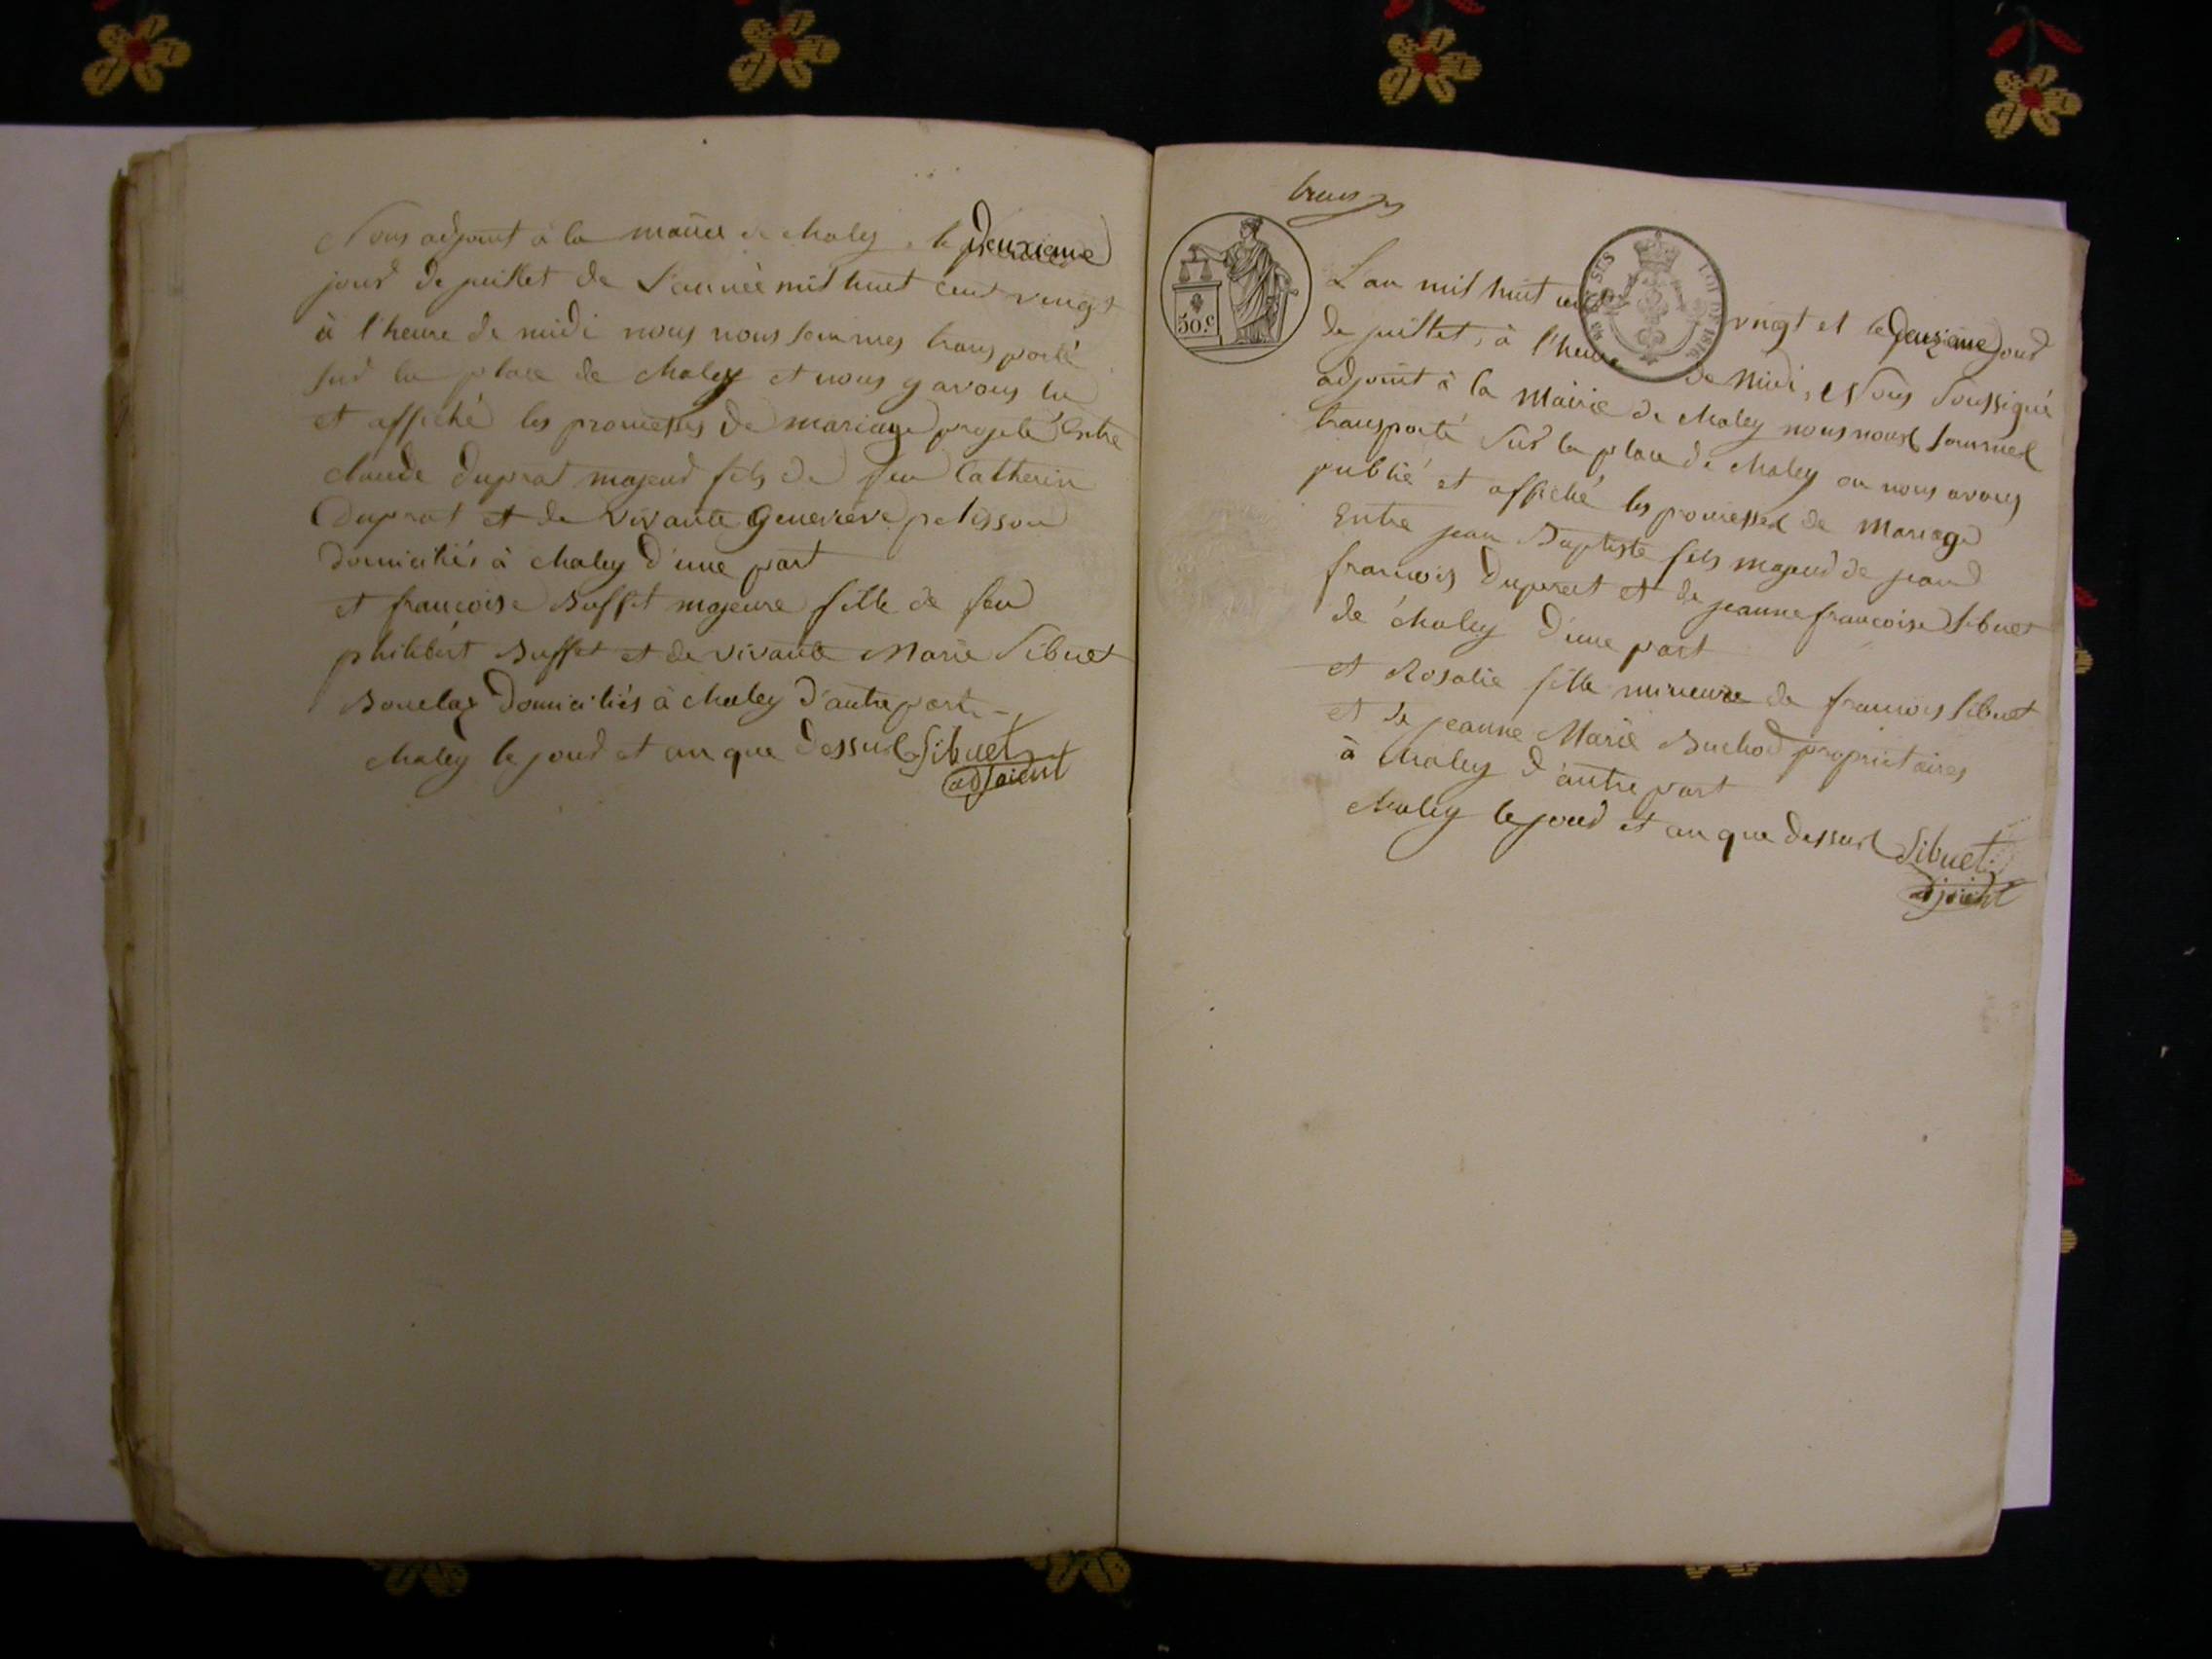 Nous adjoint à la mairie de chaley, le Deuxieme
jour de juillet de L'année mil huit cent vingt
à l'heure de midi nous nous sommes transporté
sur la place de chaley et nous y avons lu
et affiché les promesses de mariage projeté Entre
claude duprat majeur fils de feu Catherin
Duprat et de vivante Genevieve pelisson
domiciliés à chaley d'une part
et francoise Buffet majeure fille de feu
philibert Buffet et de vivante Marie Sibuet
domiciliés à chaley d'autre part
chaley le jour et an que Dessus Sibuet
adjoient
50.C
LOI DE 1816
L'an mil huit cent vingt et le Deuxieme jour
de juillet, à l'heure de Midi, Nous Soussigné
adjoint à la Mairie de chaley nous nous sommes
transporté Sur la place de chaley ou nous avons
publié et affiché les promesses de Mariage
Entre jean Baptiste fils majeur de jean
francois Duprat et de jeanne francoise Sibuet
de chaley d'une part
et Rosalie fille mineure de francois Sibuet
et de jeanne Marie Buchod propriétaires
à chaley d'autre part
chaley le jour et an que dessus Sibuet
adjoient